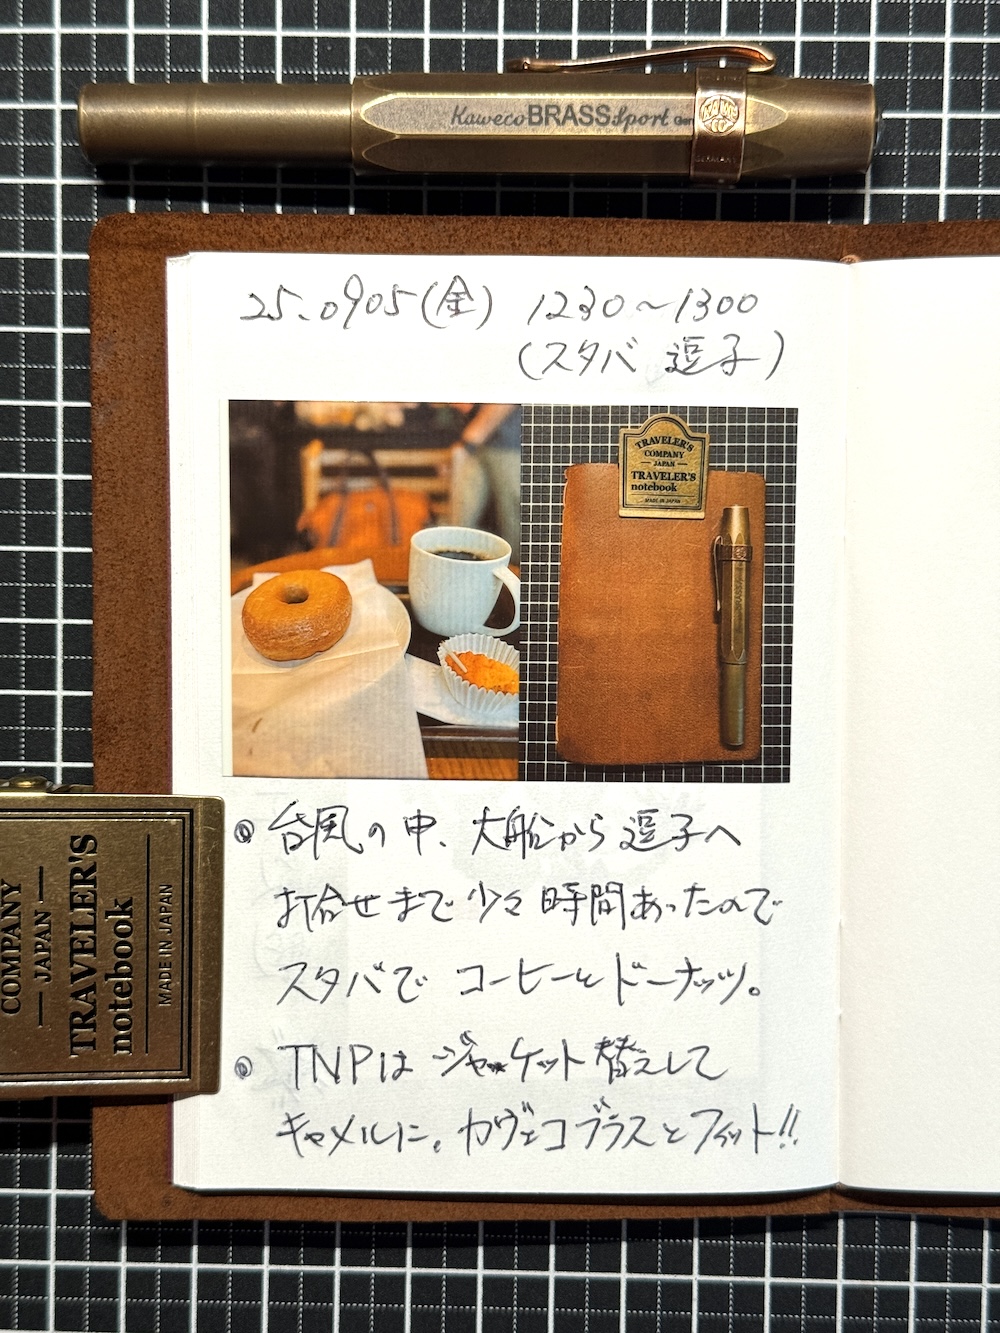 Kaweco BRASS Sport
GERMANY
25.0905(金) 1230～1300
(スタバ 逗子)
TRAVELER'S
COMPANY
JAPAN
TRAVELER'S
notebook
MADE IN JAPAN
台風の中、大船から逗子へ
打合せまで少々時間あったので
スタバでコーヒーとドーナッツ。
TNPはジャケット替えして
キャメルに。カヴェコブラスとフィット!!
COMPANY
JAPAN
TRAVELER'S
notebook
MADE IN JAPAN